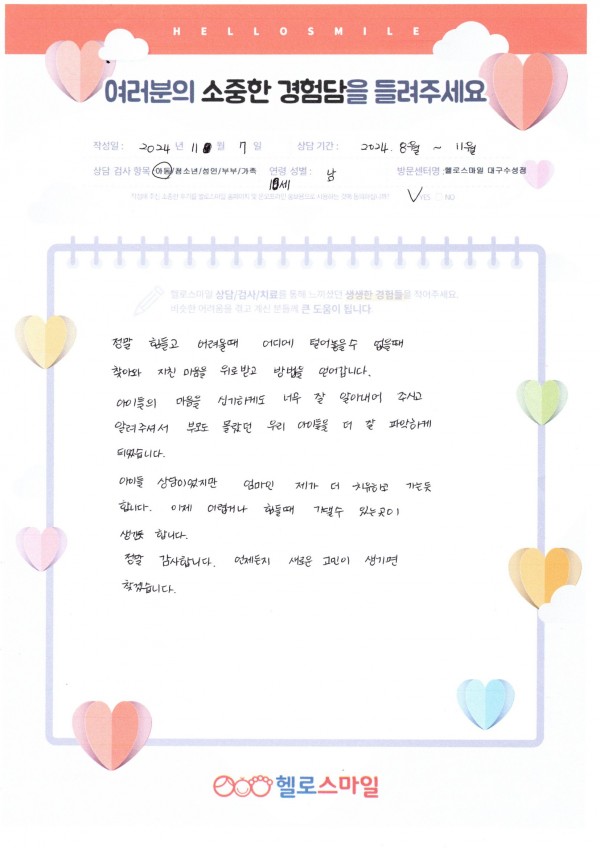 HELLOSMILE
여러분의 소중한 경험담을 들려주세요
작성일 : 2024 년 11 월 7 일 상담 기간 : 2024. 8월 ~ 11월
상담 검사 항목 : 아동/청소년/성인/부부/가족 연령 성별 : 남 방문센터명 : 헬로스마일 대구수성점
세
작성해 주신 소중한 후기를 헬로스마일 홈페이지 및 온/오프라인 홍보용으로 사용하는 것에 동의하십니까? YES NO
헬로스마일 상담/검사/치료를 통해 느끼셨던 생생한 경험들을 적어주세요.
비슷한 어려움을 겪고 계신 분들께 큰 도움이 됩니다.
정말 힘들고 어려울때 어디에 털어놓을수 없을때
찾아와 지친 마음을 위로받고 방법을 얻어갑니다.
아이들의 마음을 신기하게도 너무 잘 알아내어 주시고
알려주셔서 부모도 몰랐던 우리 아이들을 더 잘 파악하게
되었습니다.
아이들 상담이었지만 엄마인 제가 더 치유하고 가는듯
합니다. 이제 이렇거나 힘들때 기댈수 있는곳이
생긴듯 합니다.
정말 감사합니다. 언제든지 새로운 고민이 생기면
찾겠습니다.
헬로스마일